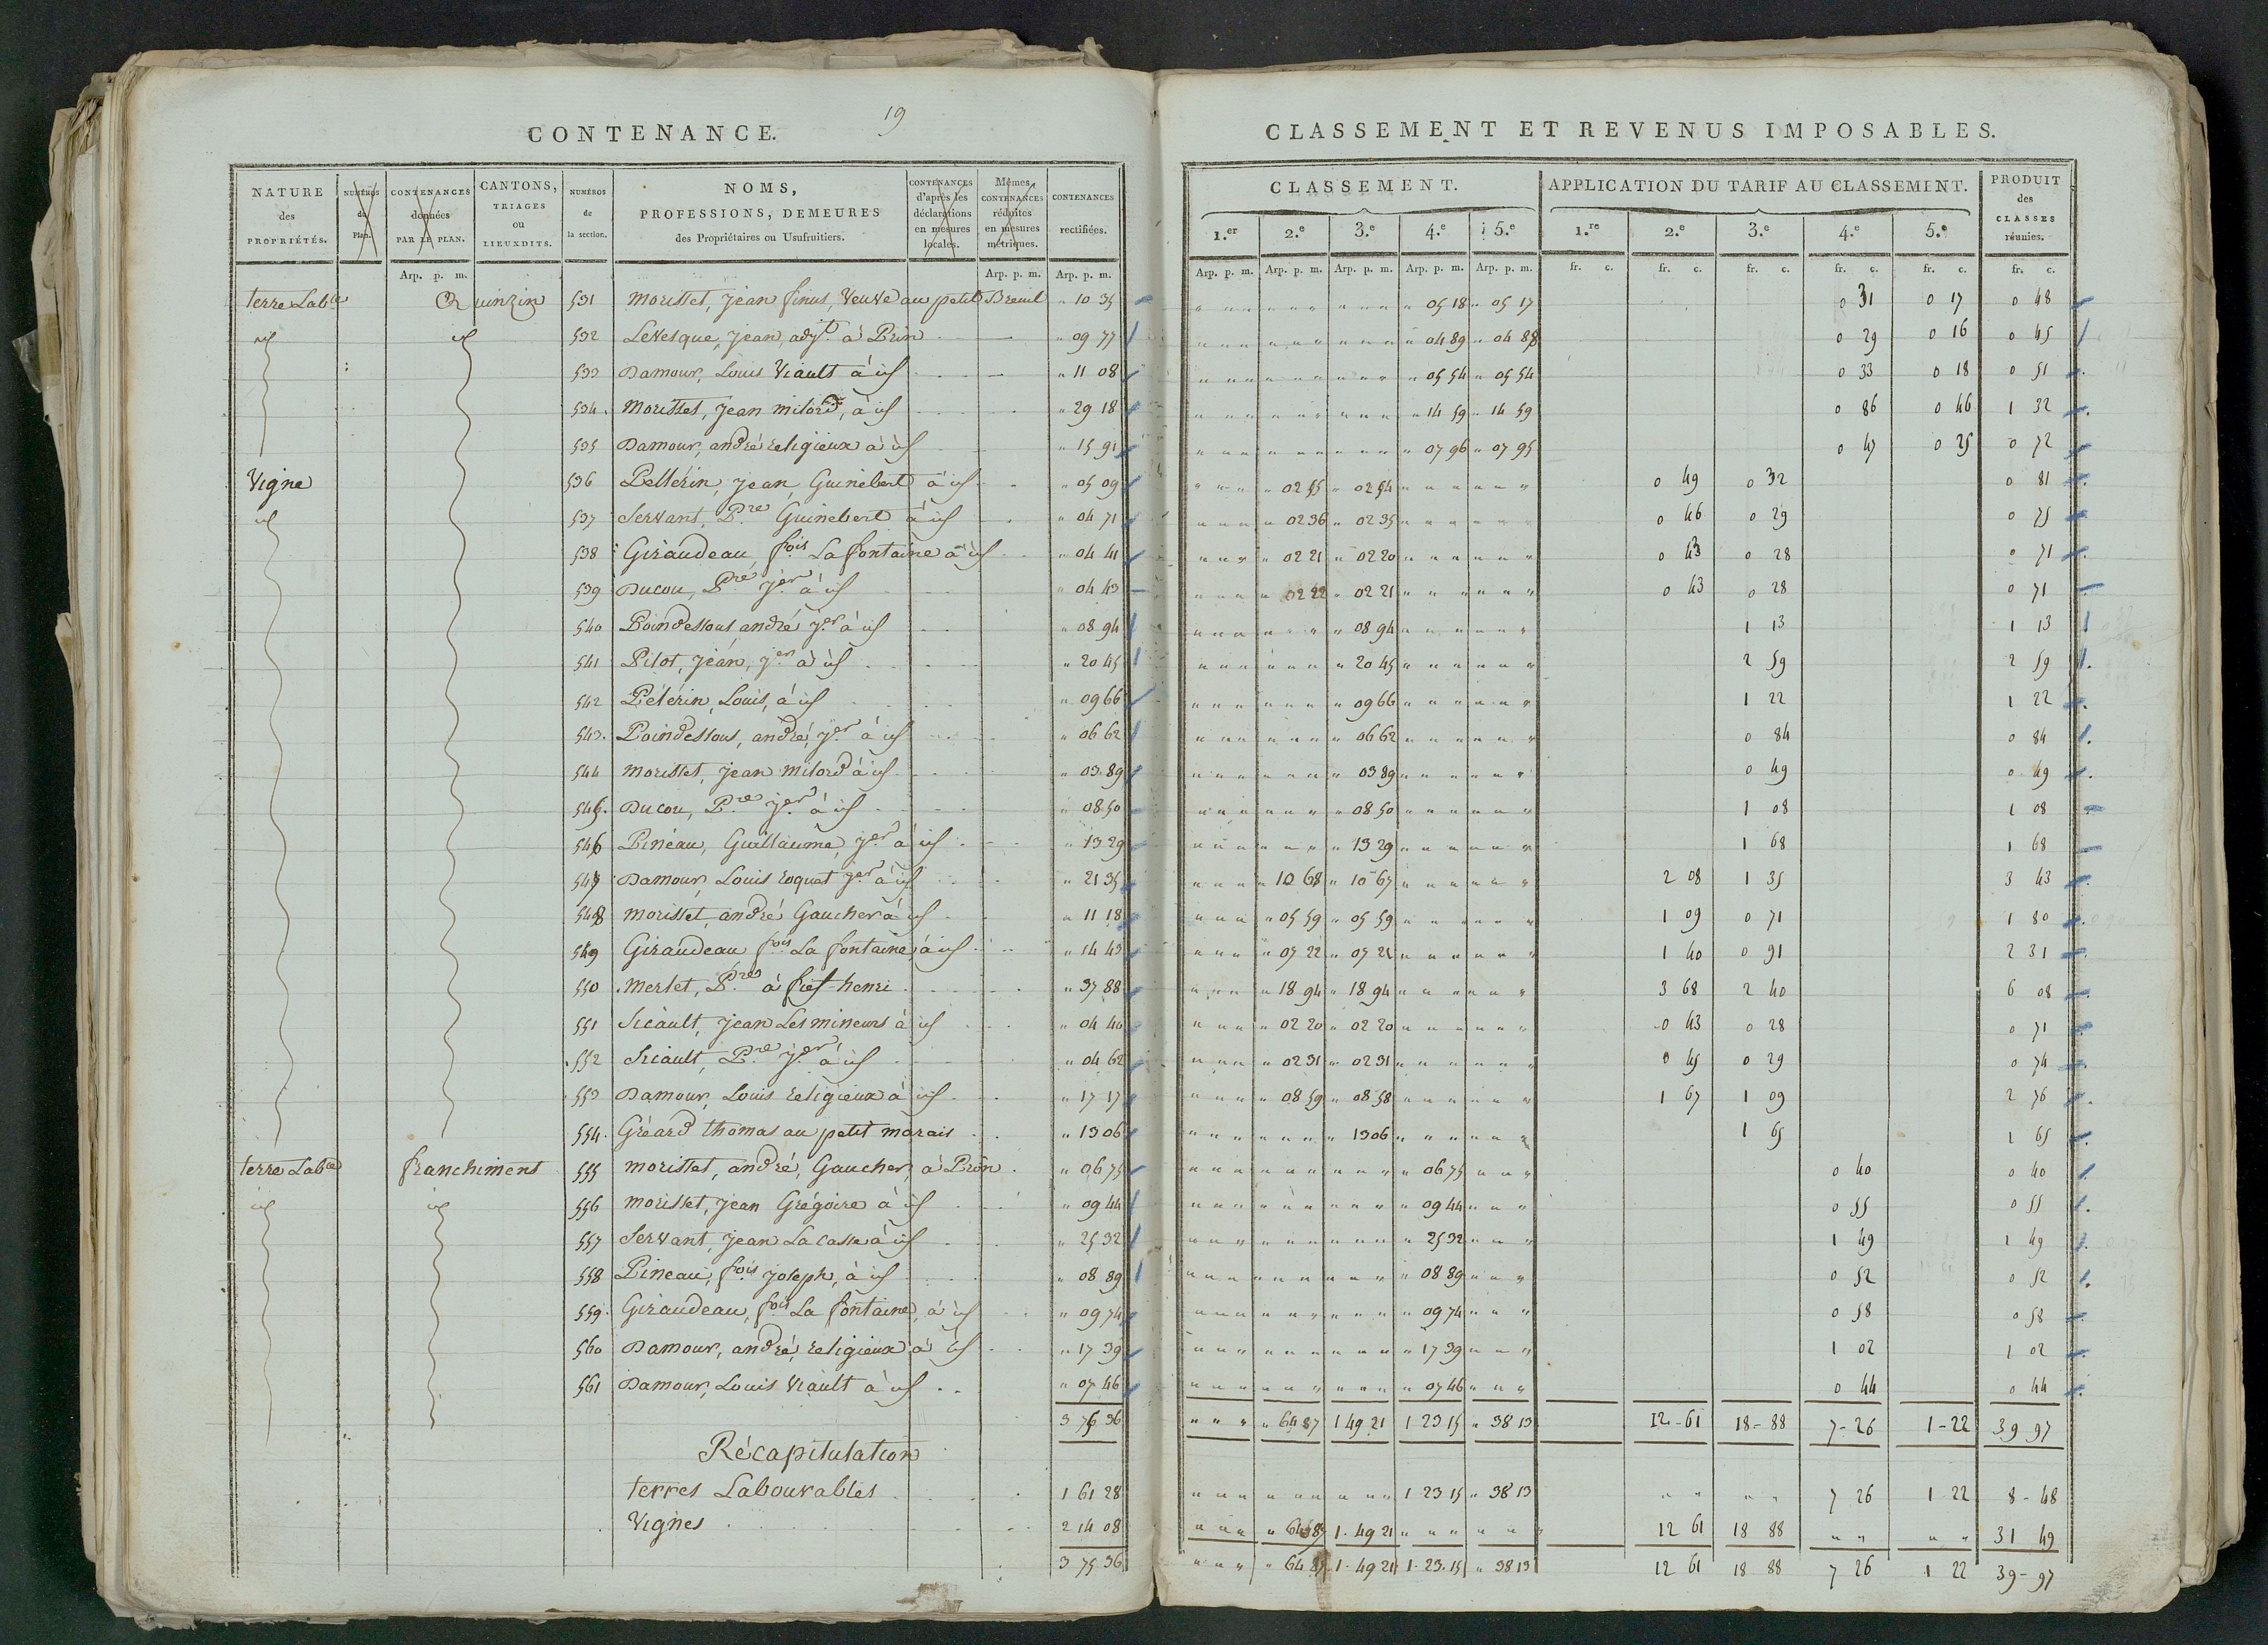 19
CONTENANCE.
NATURE des PROPRIÉTÉS. | NUMÉROS du Plan. | CONTENANCES données PAR LE PLAN. | CANTONS, TRIAGES ou LIEUXDITS. | NUMÉROS de la section. | NOMS, PROFESSIONS, DEMEURES des Propriétaires ou Usufruitiers. | CONTENANCES d'après les déclarations en mesures locales. | Mêmes CONTENANCES réduites en mesures métriques. | CONTENANCES rectifiées.
Arp. p. m. | Arp. p. m. | Arp. p. m.
terre Lable Quinzin 531 Morisset, Jean finus, Veuve au petit Breuil " 10 35
id id 532 Levesque, Jean, adjt. à Prin " 09 77
533 Damour, Louis Viault à id " 11 08
534. Morisset, Jean milord, à id " 29 18
535 Damour, andré religieux à id " 15 91
Vigne 536 Pellerin, Jean, Guinebert à id " 05 09
id 537 Servant, Pre Guinebert à id " 04 71
538 Giraudeau fois La fontaine à id " 04 41
539 Ducou, Pre jer à id " 04 43
540 Poindessous, andré jer à id " 08 94
541 Pilot, Jean, jer à id " 20 45
542 Pélerin, Louis, à id " 09 66
543. Poindessous, andré, jer à id " 06 62
544 Morisset, Jean milord à id " 03 89
545. Ducou, Pre jer à id " 08 50
546 Pinéau, Guillaume, jer à id " 13 29
547 Damour, Louis roquat jer à id " 21 35
548 Morisset, andré Gaucher à id " 11 18
549 Giraudeau fois La fontaine à id " 14 43
550 Merlet, Pre à fief henri " 37 88
551 Siéault, Jean Les mineurs à id " 04 40
552 Siéault, Pre jer à id " 04 62
553 Damour, Louis religieux à id " 17 17
554. Gréard thomas au petit marais " 13 06
terre Lable franchiment 555 Morisset, andré, Gaucher, à Prin " 06 75
id id 556 Morisset, Jean Grégoire à id " 09 44
557 Servant, Jean La casse à id " 25 32
558 Pineau, fois joseph, à id " 08 89
559. Giraudeau, fois La fontaine, à id " 09 74
560 Damour, andré, religieux à id " 17 39
561 Damour, Louis Viault à id " 07 46
3 75 36
Récapitulation
terres Labourables 1 61 28
Vignes 2 14 08
3 75 36
CLASSEMENT ET REVENUS IMPOSABLES.
CLASSEMENT. | APPLICATION DU TARIF AU CLASSEMENT. | PRODUIT des CLASSES réunies.
1.er | 2.e | 3.e | 4.e | 5.e | 1.re | 2.e | 3.e | 4.e | 5.e
Arp. p. m. | Arp. p. m. | Arp. p. m. | Arp. p. m. | Arp. p. m. | fr. c. | fr. c. | fr. c. | fr. c. | fr. c. | fr. c.
" 05 18 " 05 17 0 31 0 17 0 48
" 04 89 " 04 88 0 29 0 16 0 45
" 05 54 " 05 54 0 33 0 18 0 51
" 14 59 " 14 59 0 86 0 46 1 32
" 07 96 " 07 95 0 47 0 25 0 72
" 02 55 " 02 54 0 49 0 32 0 81
" 02 36 " 02 35 0 46 0 29 0 75
" 02 21 " 02 20 0 43 0 28 0 71
" 02 22 " 02 21 0 43 0 28 0 71
" 08 94 1 13 1 13
" 20 45 2 59 2 59
" 09 66 1 22 1 22
" 06 62 0 84 0 84
" 03 89 0 49 0 49
" 08 50 1 08 1 08
" 13 29 1 68 1 68
" 10 68 " 10 67 2 08 1 35 3 43
" 05 59 " 05 59 1 09 0 71 1 80
" 07 22 " 07 21 1 40 0 91 2 31
" 18 94 " 18 94 3 68 2 40 6 08
" 02 20 " 02 20 0 43 0 28 0 71
" 02 31 " 02 31 0 45 0 29 0 74
" 08 59 " 08 58 1 67 1 09 2 76
" 13 06 1 65 1 65
" 06 75 0 40 0 40
" 09 44 0 55 0 55
" 25 32 1 49 1 49
" 08 89 0 52 0 52
" 09 74 0 58 0 58
" 17 39 1 02 1 02
" 07 46 0 44 0 44
" 64 87 1 49 21 1 23 15 " 38 13 12-61 18-88 7-26 1-22 39 97
1 23 15 " 38 13 7 26 1 22 8-48
" 64 87 1-49 21 12 61 18 88 31 49
" 64 87 1-49 21 1-23.15 " 38 13 12 61 18 88 7 26 1 22 39-97